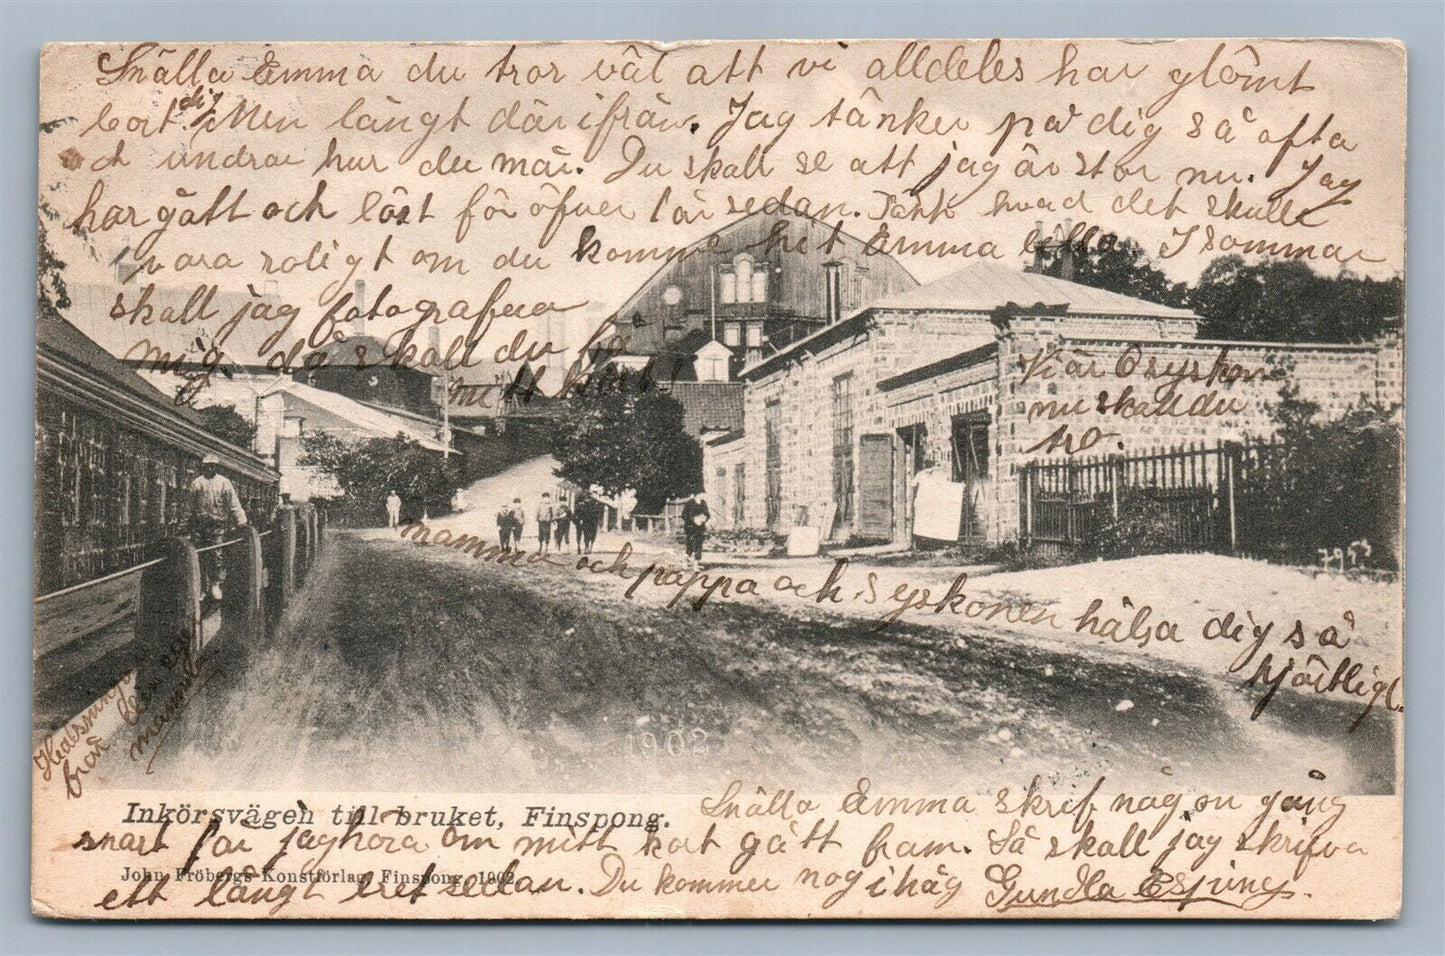 Snälla Emma du tror väl att vi alldeles har glömt
bort dig. Men långt därifrån. Jag tänker på dig så ofta
och undrar hur du mår. Du skall se att jag är stor nu. Jag
har gått och läst för öfver 1 år sedan. Tänk hvad det skulle
vara roligt om du komme hit Emma lilla. I sommar
skall jag fotografera
mig då skall du få
mitt kort!
Kär
nu skall du
tro.
mamma och pappa och syskonen hälsa dig så
hjärtligt.
Helsningar
från
mamma
1902
Inkörsvägen till bruket, Finspong.
John Fröbergs Konstförlag, Finspong, 1902
Snälla Emma skrif någon gång
snart får jag höra om mitt kort gått fram. Så skall jag skrifva
ett långt bref sedan. Du kommer nog ihåg Gundla Espling.